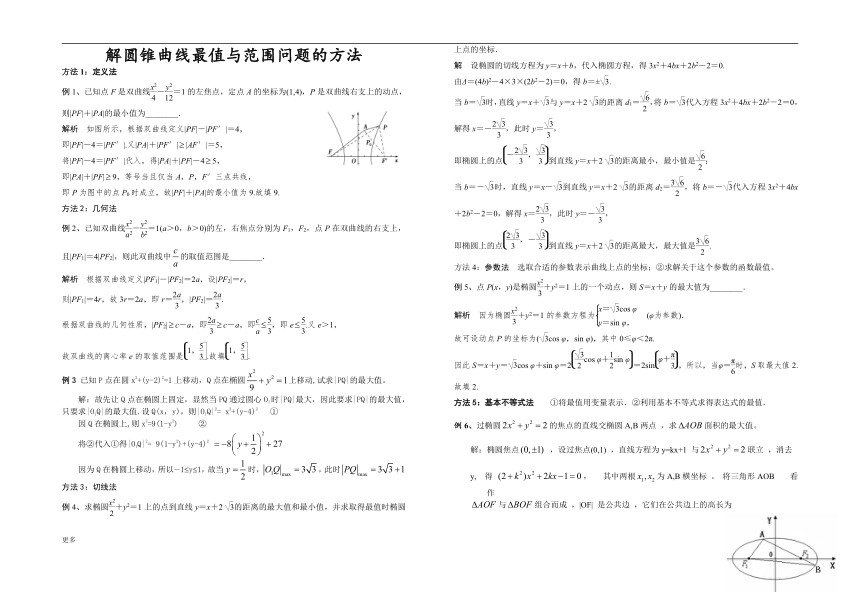 解圆锥曲线最值与范围问题的方法
方法1：定义法
例1、已知点F是双曲线x²/4－y²/12＝1的左焦点，定点A的坐标为(1,4)，P是双曲线右支上的动点，
则|PF|＋|PA|的最小值为________.
解析　如图所示，根据双曲线定义|PF|－|PF′|＝4，
即|PF|－4＝|PF′|.又|PA|＋|PF′|≥|AF′|＝5，
将|PF|－4＝|PF′|代入，得|PA|＋|PF|－4≥5，
即|PA|＋|PF|≥9，等号当且仅当A，P，F′三点共线，
即P为图中的点P₀时成立，故|PF|＋|PA|的最小值为9.故填9.
y
A
P
P₀
F
O
F′
x
方法2：几何法
例2、已知双曲线x²/a²－y²/b²＝1(a＞0，b＞0)的左，右焦点分别为F₁，F₂，点P在双曲线的右支上，
且|PF₁|＝4|PF₂|，则此双曲线中c/a的取值范围是________.
解析　根据双曲线定义|PF₁|－|PF₂|＝2a，设|PF₂|＝r，
则|PF₁|＝4r，故3r＝2a，即r＝2a/3，|PF₂|＝2a/3.
根据双曲线的几何性质，|PF₂|≥c－a，即2a/3≥c－a，即c/a≤5/3，即e≤5/3.又e＞1，
故双曲线的离心率e的取值范围是(1，5/3].故填(1，5/3].
例3 已知P点在圆x²+(y-2)²=1上移动，Q点在椭圆x²/9+y²=1上移动,试求|PQ|的最大值。
解：故先让Q点在椭圆上固定，显然当PQ通过圆心O₁时|PQ|最大，因此要求|PQ|的最大值，
只要求|O₁Q|的最大值.设Q(x，y)，则|O₁Q|²= x²+(y-4)² ①
因Q在椭圆上,则x²=9(1-y²) ②
将②代入①得|O₁Q|²= 9(1-y²)+(y-4)² =-8(y+1/2)²+27
因为Q在椭圆上移动，所以-1≤y≤1，故当y=1/2时，|O₁Q|max=3√3，此时|PQ|max=3√3+1
方法3：切线法
例4、求椭圆x²/2＋y²＝1上的点到直线y＝x＋2√3的距离的最大值和最小值，并求取得最值时椭圆
更多
上点的坐标.
解　设椭圆的切线方程为y＝x＋b，代入椭圆方程，得3x²＋4bx＋2b²－2＝0.
由Δ＝(4b)²－4×3×(2b²－2)＝0，得b＝±√3.
当b＝√3时，直线y＝x＋√3与y＝x＋2√3的距离d₁＝√6/2，将b＝√3代入方程3x²＋4bx＋2b²－2＝0，
解得x＝－2√3/3，此时y＝√3/3，
即椭圆上的点(－2√3/3，√3/3)到直线y＝x＋2√3的距离最小，最小值是√6/2；
当b＝－√3时，直线y＝x－√3到直线y＝x＋2√3的距离d₂＝3√6/2，将b＝－√3代入方程3x²＋4bx
＋2b²－2＝0，解得x＝2√3/3，此时y＝－√3/3，
即椭圆上的点(2√3/3，－√3/3)到直线y＝x＋2√3的距离最大，最大值是3√6/2.
方法4：参数法　选取合适的参数表示曲线上点的坐标；②求解关于这个参数的函数最值。
例5、点P(x，y)是椭圆x²/3＋y²＝1上的一个动点，则S＝x＋y的最大值为________.
解析　因为椭圆x²/3＋y²＝1的参数方程为{x＝√3cos φ y＝sin φ，(φ为参数).
故可设动点P的坐标为(√3cos φ，sin φ)，其中0≤φ＜2π.
因此S＝x＋y＝√3cos φ＋sin φ＝2(√3/2cos φ＋1/2sin φ)＝2sin(φ＋π/3)，所以，当φ＝π/6时，S取最大值2.
故填2.
方法5：基本不等式法　①将最值用变量表示.②利用基本不等式求得表达式的最值.
例6、过椭圆2x²+y²=2的焦点的直线交椭圆A,B两点，求ΔAOB面积的最大值。
解：椭圆焦点(0,±1)，设过焦点(0,1)，直线方程为y=kx+1 与2x²+y²=2联立，消去
y,　得 (2+k²)x²+2kx-1=0，　其中两根x₁,x₂为A,B横坐标 。 将三角形AOB 看作
ΔAOF与ΔBOF组合而成，|OF| 是公共边，它们在公共边上的高长为
Y
A
F₁
0
F₂
B
X